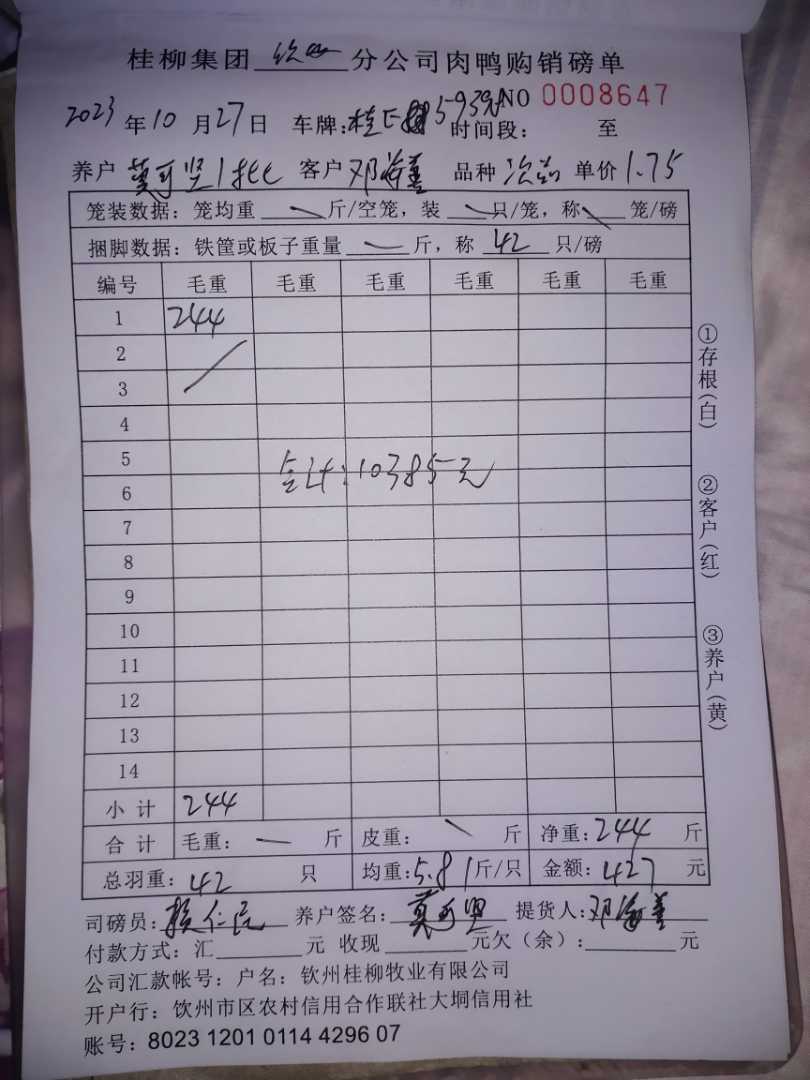 桂柳集团 钦州 分公司肉鸭购销磅单
NO 0008647
2023 年 10 月 27 日 车牌: 桂 593 时间段: 至
养户 莫可坚 1批 客户 邓海善 品种 次品 单价 1.75
笼装数据: 笼均重 斤/空笼, 装 只/笼, 称 笼/磅
捆脚数据: 铁筐或板子重量 斤, 称 42 只/磅
编号 毛重 毛重 毛重 毛重 毛重 毛重
1 244
2
3
4
5
合计:10385元
6
7
8
9
10
11
12
13
14
小计 244
合计 毛重: 斤 皮重: 斤 净重: 244 斤
总羽重: 42 只 均重: 5.81 斤/只 金额: 427 元
司磅员: 仁民 养户签名: 莫可坚 提货人: 邓海善
付款方式: 汇 元 收现 元欠(余): 元
公司汇款帐号: 户名: 钦州桂柳牧业有限公司
开户行: 钦州市区农村信用合作联社大垌信用社
账号: 8023 1201 0114 4296 07
①存根(白)
②客户(红)
③养户(黄)